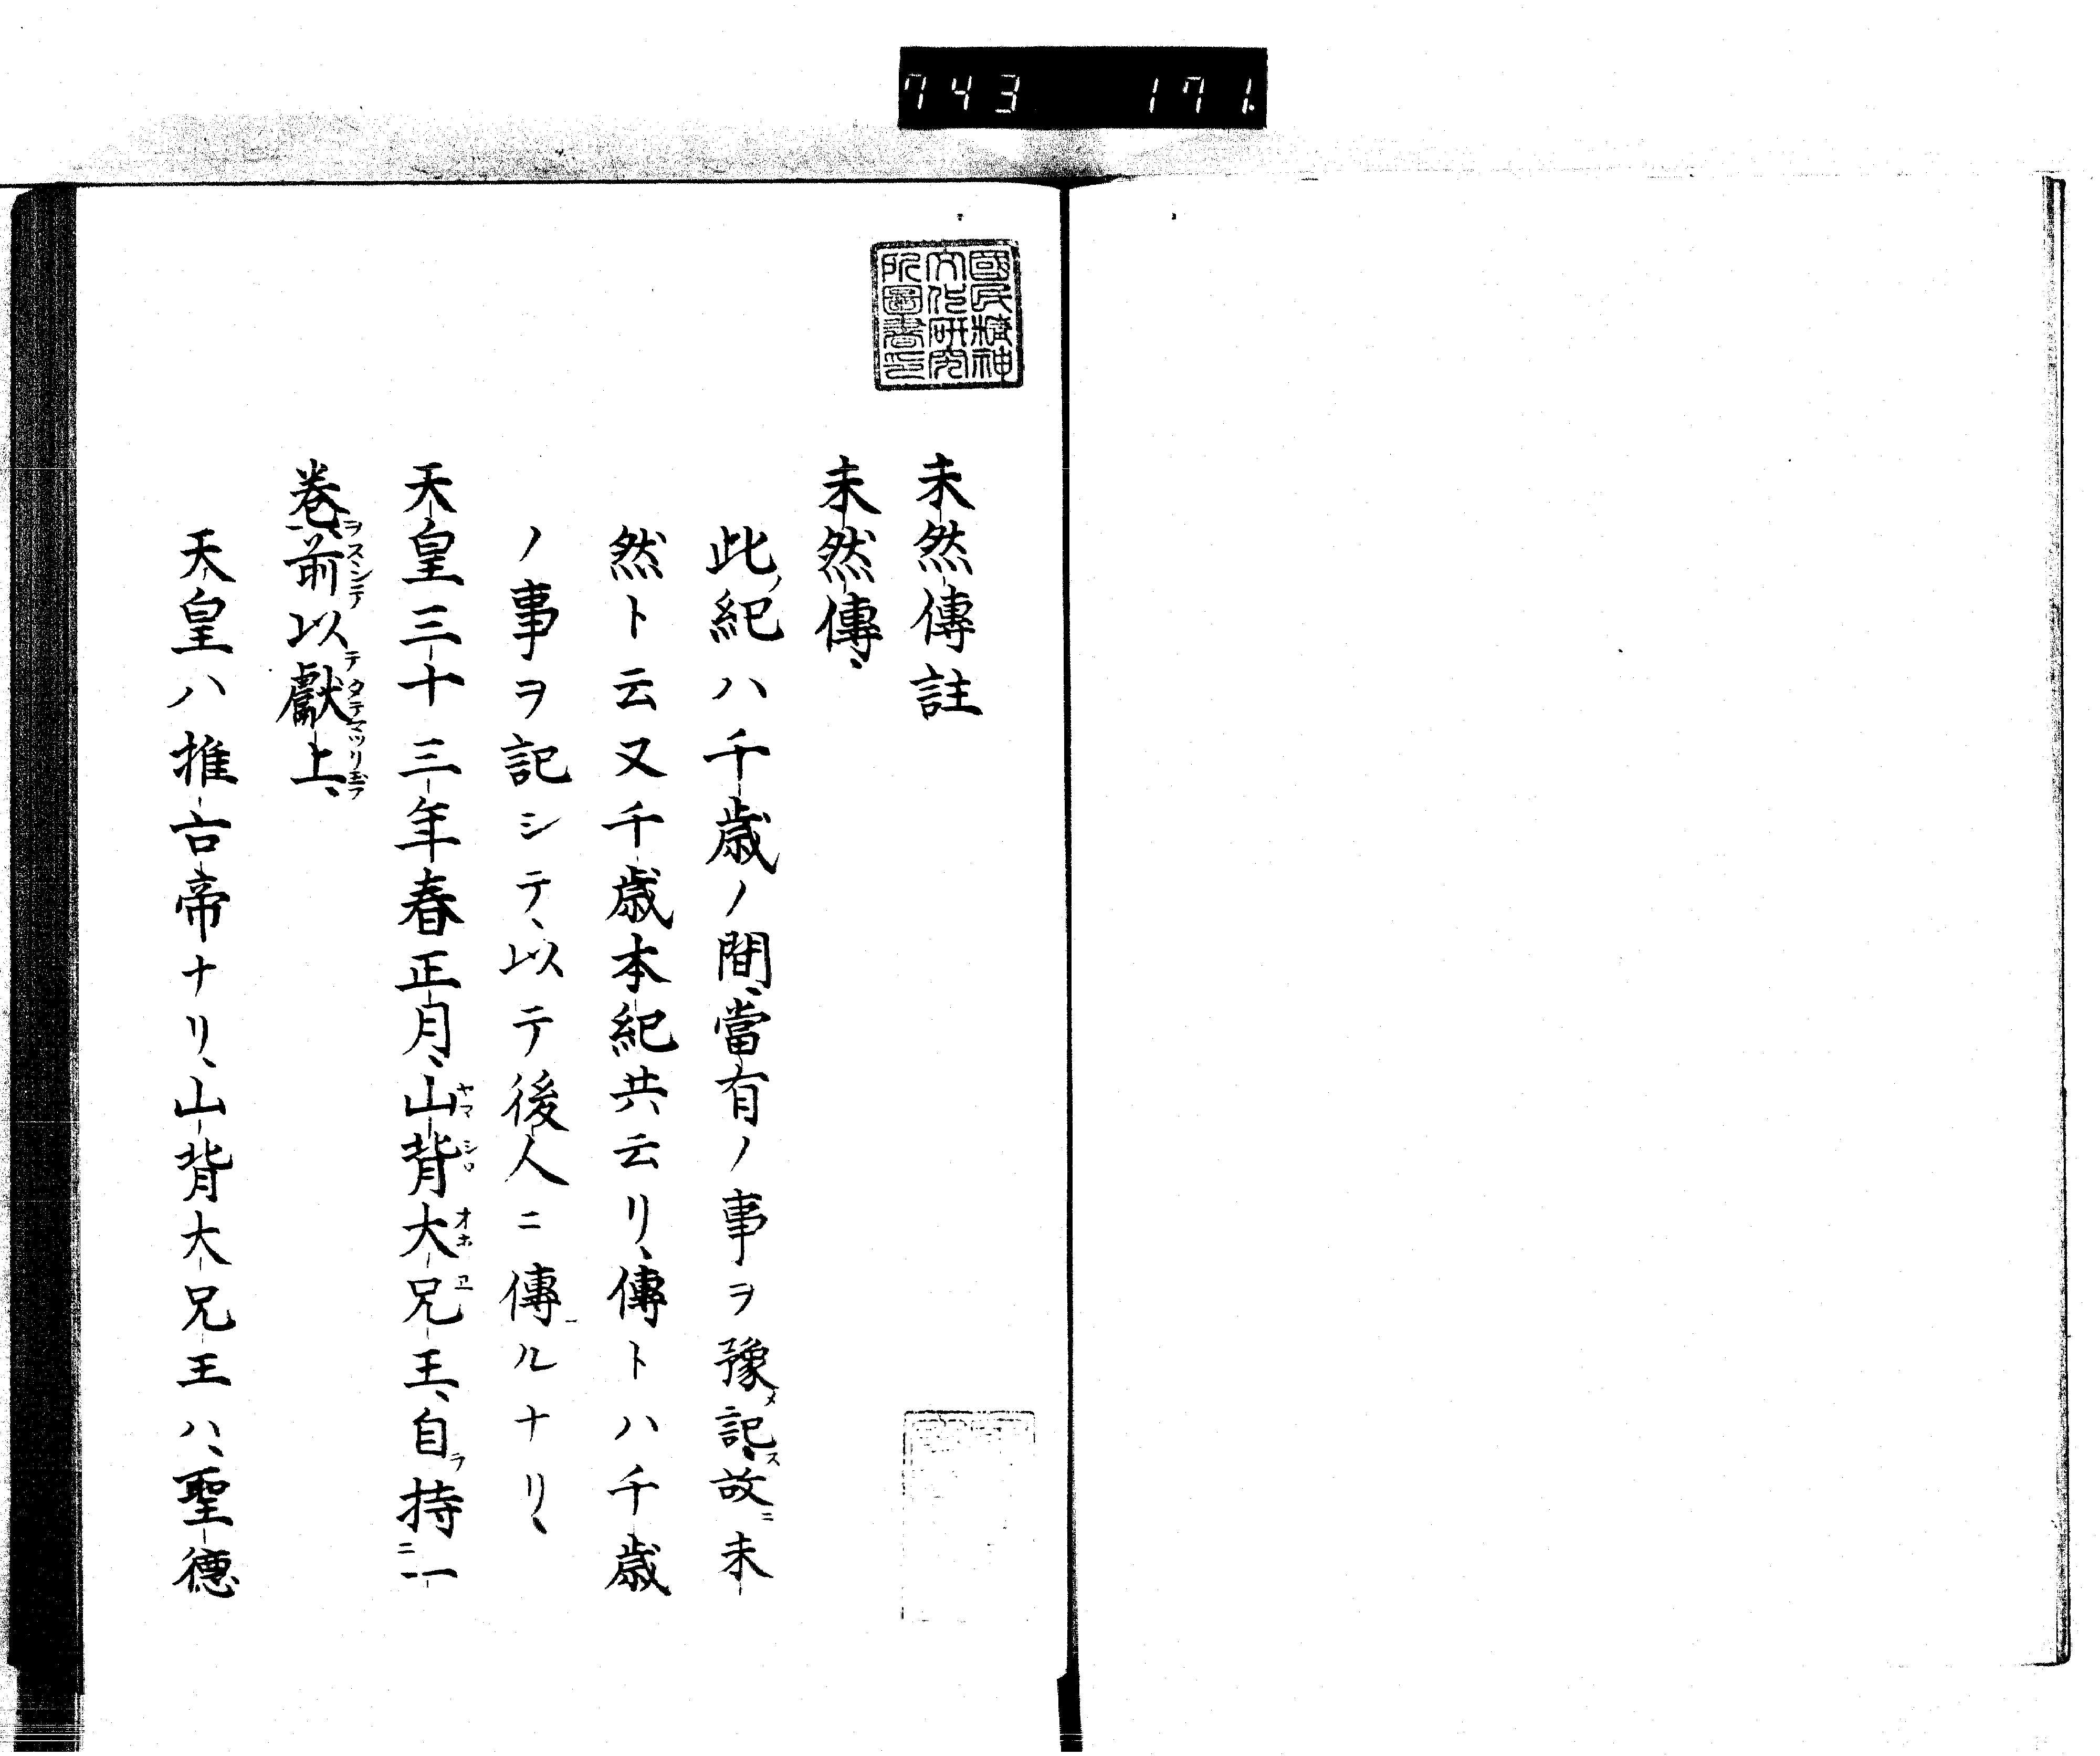 743 171.
國民精神
文化研究
所圖書印
未然傳註
未然傳、
此ノ紀ハ千歳ノ間、當有ノ事ヲ豫メ記ス、故ニ未
然ト云又千歳本紀共云リ、傳トハ千歳
ノ事ヲ記シテ、以テ後人ニ傳ルナリ、
天皇三十三年春正月、山背大兄王、自ラ持二一
ヤマシロオホヱ
卷一、前以獻上、
ヲススンテテタテマツリ玉フ
天皇ハ推古帝ナリ、山背大兄王ハ、聖德